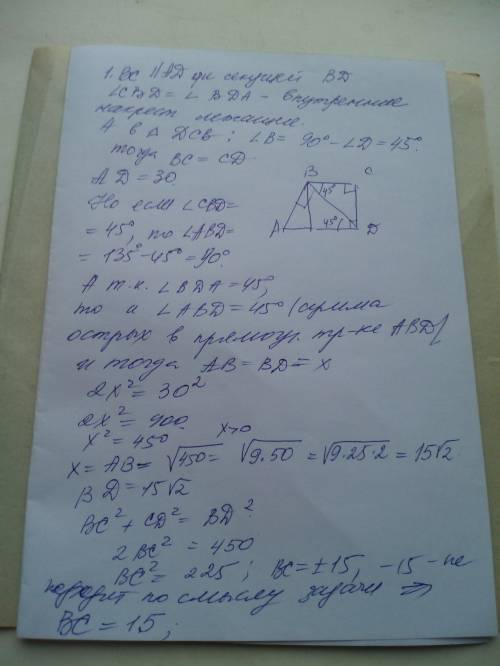 1. BC || AD при секущей BD
∠CBD = ∠ BDA - внутренние
накрест лежащие.
А в △ DCB ; ∠B = 90° - ∠D = 45°.
тогда BC = CD
AD = 30.
Но если ∠CBD =
= 45°, то ∠ABD =
= 135° - 45° = 90°.
B C
45°
A 45° D
А т.к. ∠BDA = 45°,
то и ∠ABD = 45° (сумма
острых в прямоуг. тр-ке ABD)
и тогда AB = BD = x
2x² = 30²
2x² = 900.
x² = 450 x>0
x = AB = √450 = √9·50 = √9·25·2 = 15√2
BD = 15√2
BC² + CD² = BD².
2BC² = 450
BC² = 225 ; BC = ±15, -15 - не
подходит по смыслу задачи ⇒
BC = 15 ;